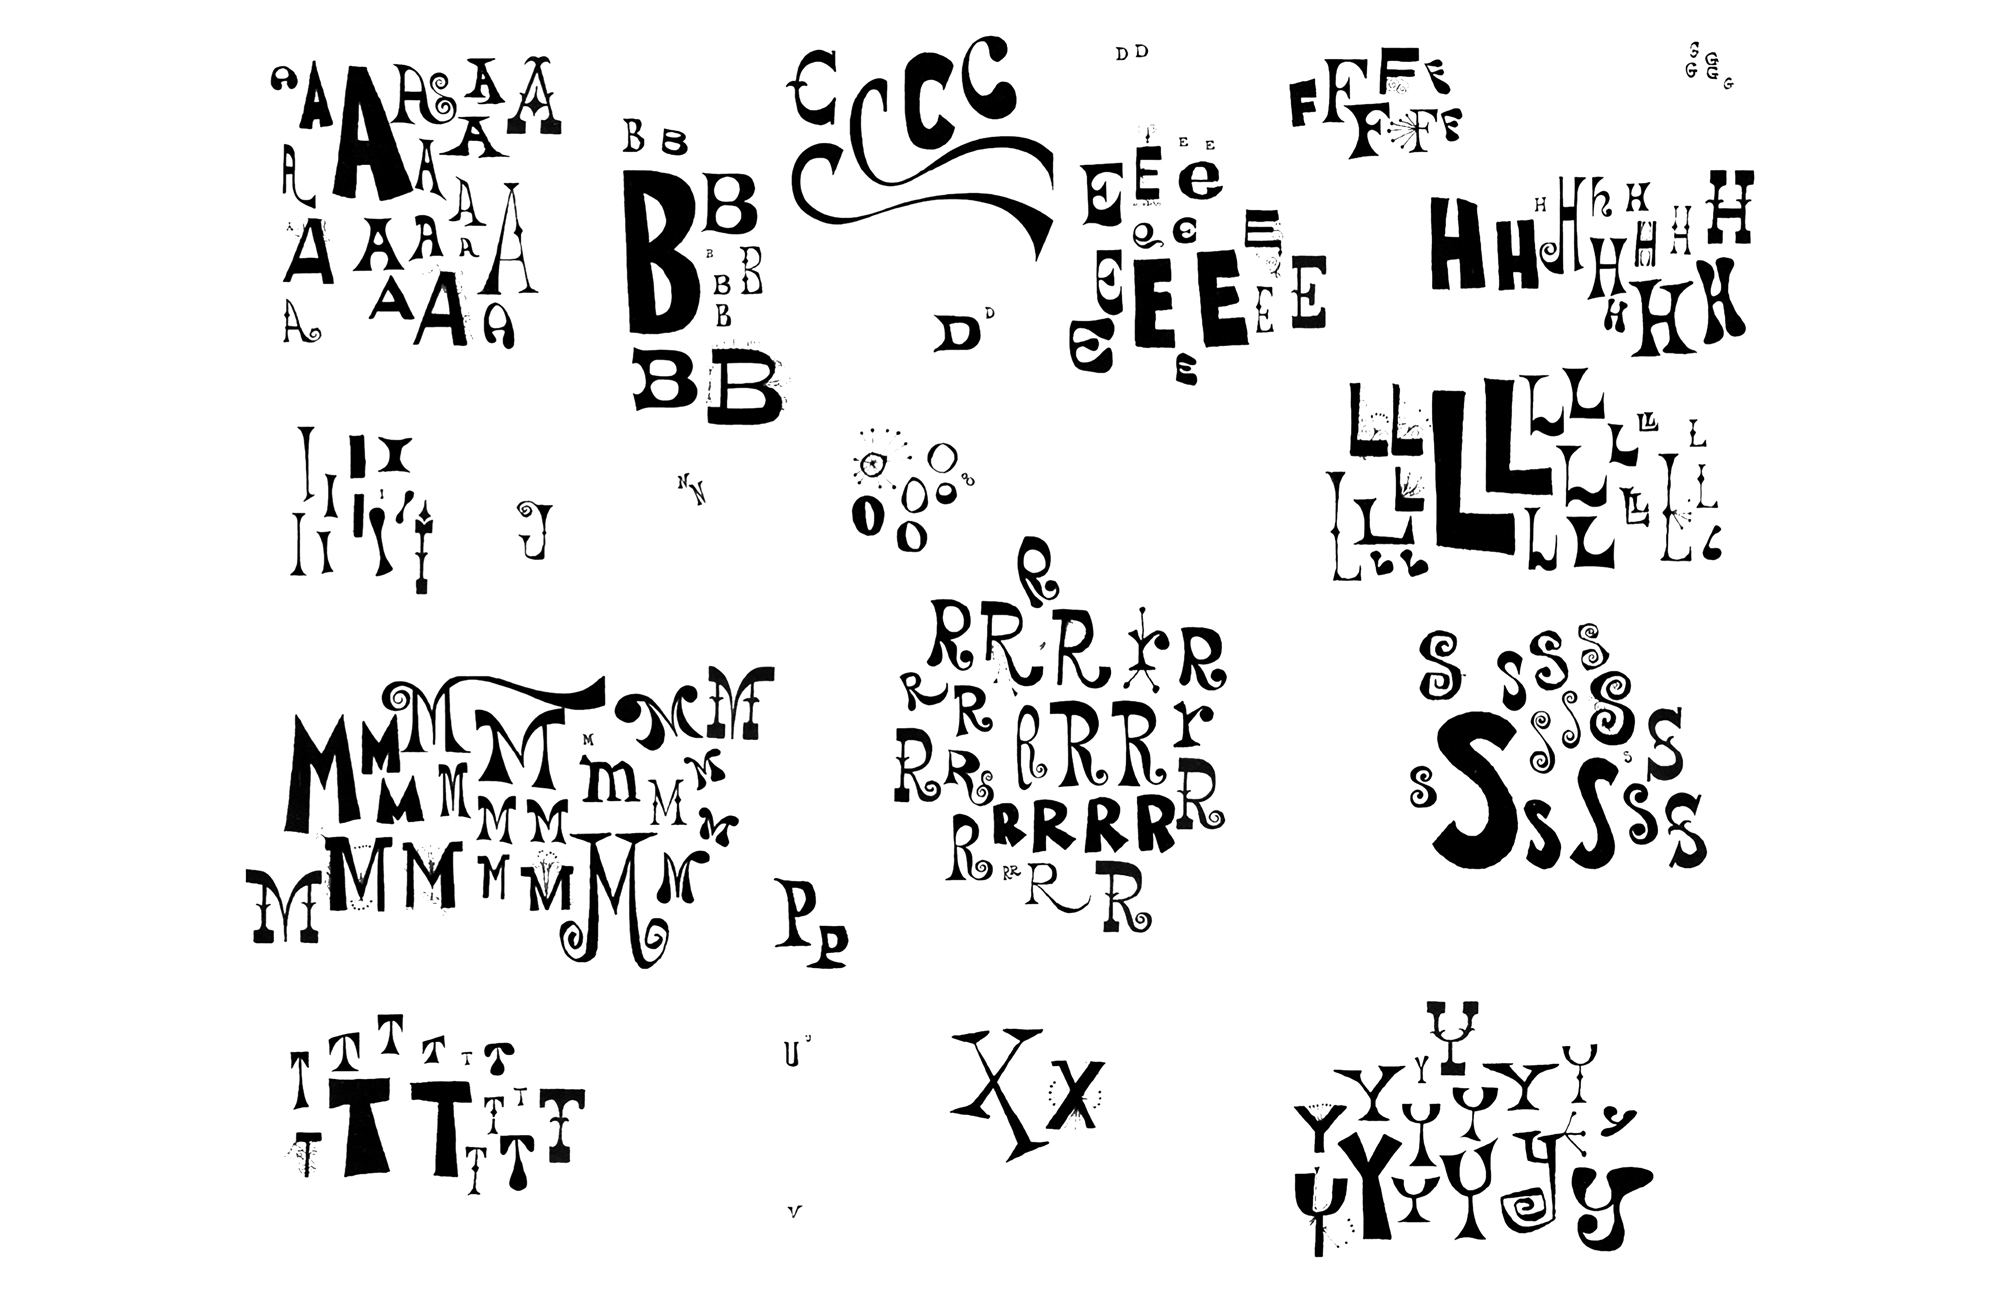 A A A A S A A
A A A
A A A A A A A
A A A A A
B B
B B
B B B B
B B
C C C C
C
D D
D D
E E E
E E e
e e E
E E E E E
E E
F F F F
F F F
G G G G G
H H H H H H
H H H H H
H H H H
I I I I
I I I I I
J
N N
O O O O O O O O
L L L L L L
L L L L L L
L L L L L L L
L L L L L L
M M M M M M
M M M m M M
M M M M
M M M M M M M
P P
R
R R R r R
R R
R R R R r
R R S R
R R R R R
R R R R R
S S S S
S S S S S
S S S S S S
T T T T T T
T T T T T
T T T
U U
V
X X
Y
Y Y Y Y
Y Y Y y
Y Y Y y
Y Y y